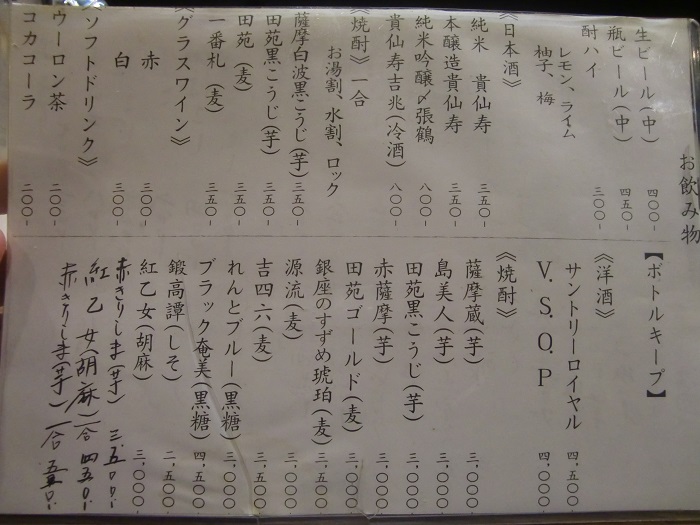 お飲み物
生ビール(中) 四〇〇-
瓶ビール(中) 四五〇-
酎ハイ 三〇〇-
レモン、ライム
柚子、梅
《日本酒》
純米 貴仙寿 三五〇-
本醸造貴仙寿 三五〇-
純米吟醸〆張鶴 八〇〇-
貴仙寿吉兆(冷酒) 八〇〇-
《焼酎》一合
お湯割、水割、ロック
薩摩白波黒こうじ(芋) 三五〇-
田苑黒こうじ(芋) 三五〇-
田苑(麦) 三五〇-
一番札(麦) 三五〇-
《グラスワイン》
赤 三〇〇-
白 三〇〇-
ソフトドリンク》
ウーロン茶 二〇〇-
コカコーラ 二〇〇-
【ボトルキープ】
《洋酒》
サントリーロイヤル 四,五〇〇-
V.S.O.P 四,〇〇〇-
《焼酎》
薩摩蔵(芋) 三,〇〇〇-
島美人(芋) 三,〇〇〇-
田苑黒こうじ(芋) 三,〇〇〇-
赤薩摩(芋) 三,〇〇〇-
田苑ゴールド(麦) 三,〇〇〇-
銀座のすずめ琥珀(麦) 三,五〇〇-
源流(麦) 三,〇〇〇-
吉四六(麦) 三,五〇〇-
れんとブルー(黒糖) 三,〇〇〇-
ブラック奄美(黒糖) 四,五〇〇-
鍛高譚(しそ) 二,五〇〇-
紅乙女(胡麻) 三,〇〇〇-
赤きりしま(芋) 三,五〇〇-
紅乙女(胡麻)一合 四五〇-
赤きりしま(芋)一合 五五〇-